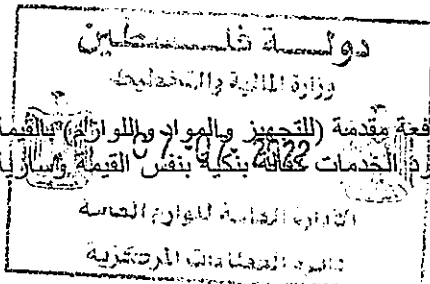 دولـــــة فلـــــسـطين
وزارة المالية والتخطيط
فعة مقدمة (للتجهيز والمواد واللوازم) بالقيمة
الخدمات كفالة بنكية بنفس القيمة وسارية
2022
الإدارة العامة للوازم العامة
دائرة العطاءات المركزية